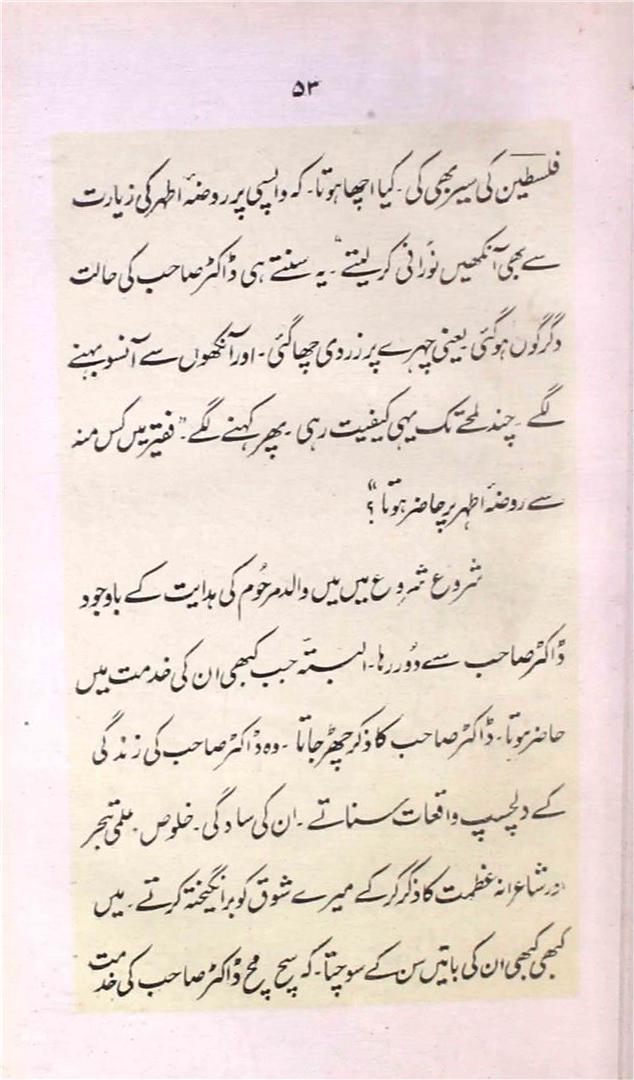 ۵۳
فلسطین کی سیر بھی کی۔ کیا اچھا ہوتا۔ کہ واپسی پر روضۂ اطہر کی زیارت
سے بھی آنکھیں نورانی کر لیتے"۔ یہ سنتے ہی ڈاکٹر صاحب کی حالت
دگرگوں ہوگئی۔ یعنی چہرے پر زردی چھا گئی۔ اور آنکھوں سے آنسو بہنے
لگے۔ چند لمحے تک یہی کیفیت رہی۔ پھر کہنے لگے۔ "فقیر میں کس منہ
سے روضۂ اطہر پر حاضر ہوتا"؟
شروع شروع میں میں والد مرحُوم کی ہدایت کے باوجود
ڈاکٹر صاحب سے دُور رہا۔ البتّہ جب کبھی ان کی خدمت میں
حاضر ہوتا۔ ڈاکٹر صاحب کا ذکر چھڑ جاتا۔ وہ ڈاکٹر صاحب کی زندگی
کے دلچسپ واقعات سناتے۔ ان کی سادگی۔ خلوص۔ علمی تبحر
اور شاعرانہ عظمت کا ذکر کر کے میرے شوق کو برانگیختہ کرتے۔ میں
کبھی کبھی ان کی باتیں سن کے سوچتا۔ کہ سچ مچ ڈاکٹر صاحب کی خدمت